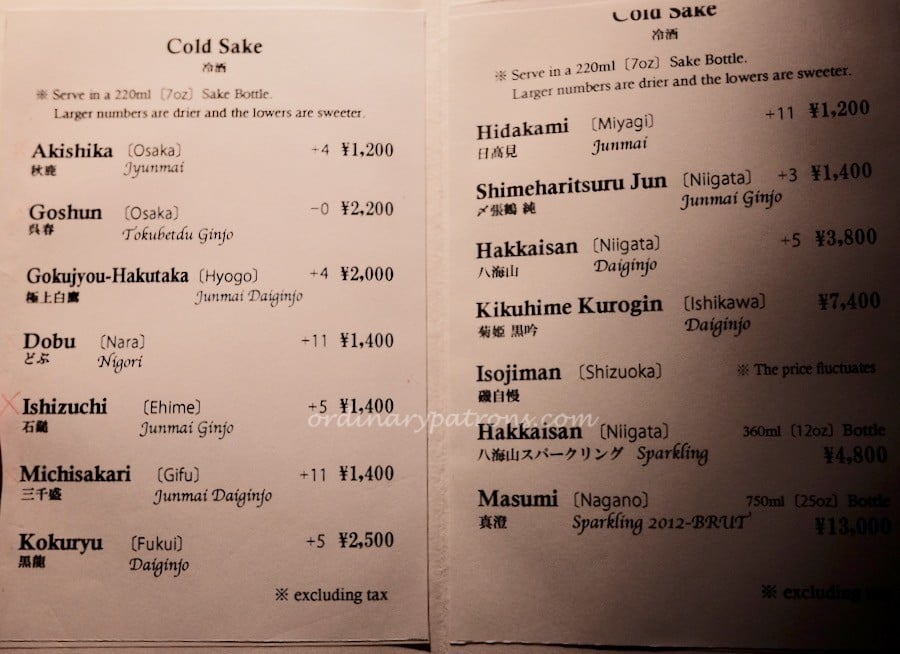 Cold Sake
冷酒
※ Serve in a 220ml〔7oz〕Sake Bottle.
Larger numbers are drier and the lowers are sweeter.
Akishika〔Osaka〕+4 ¥1,200
秋鹿 Jyunmai
Goshun〔Osaka〕−0 ¥2,200
呉春 Tokubetdu Ginjo
Gokujyou-Hakutaka〔Hyogo〕+4 ¥2,000
極上白鷹 Junmai Daiginjo
Dobu〔Nara〕+11 ¥1,400
どぶ Nigori
Ishizuchi〔Ehime〕+5 ¥1,400
石鎚 Junmai Ginjo
Michisakari〔Gifu〕+11 ¥1,400
三千盛 Junmai Daiginjo
Kokuryu〔Fukui〕+5 ¥2,500
黒龍 Daiginjo
※ excluding tax
Cold Sake
冷酒
※ Serve in a 220ml〔7oz〕Sake Bottle.
Larger numbers are drier and the lowers are sweeter.
Hidakami〔Miyagi〕+11 ¥1,200
日高見 Junmai
Shimeharitsuru Jun〔Niigata〕+3 ¥1,400
〆張鶴 純 Junmai Ginjo
Hakkaisan〔Niigata〕+5 ¥3,800
八海山 Daiginjo
Kikuhime Kurogin〔Ishikawa〕¥7,400
菊姫 黒吟 Daiginjo
Isojiman〔Shizuoka〕※ The price fluctuates
磯自慢
Hakkaisan〔Niigata〕360ml〔12oz〕Bottle
八海山スパークリング Sparkling ¥4,800
Masumi〔Nagano〕750ml〔25oz〕Bottle
真澄 Sparkling 2012-BRUT ¥13,000
※ excluding
ordinarypatrons.com